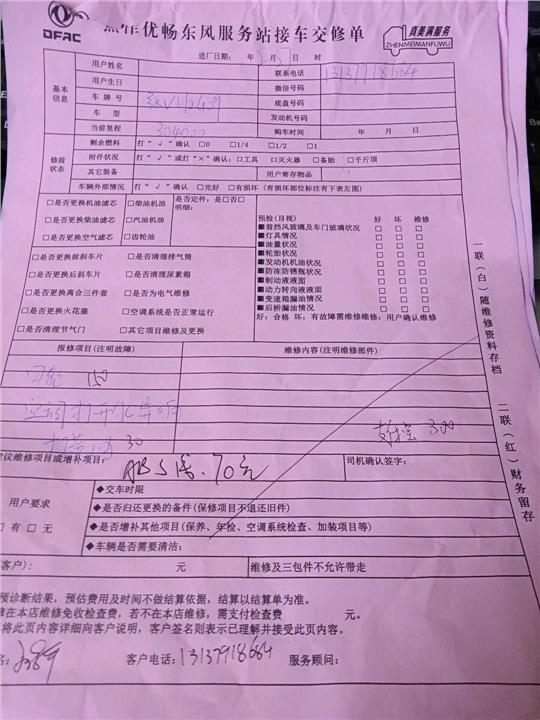 DFAC
优畅东风服务站接车交修单
真美满服务
ZHENMEIMANFUWU
进厂日期: 年 月 日 时
基本信息
用户姓名 联系电话 13137918664
用户生日 微信号码
车牌号 底盘号码
车型 发动机号码
当前里程 304022 购车时间 年 月 日
修前状态
剩余燃料 打“√”确认 □0 □1/4 □1/2 □1
附件状况 打“√”或打“×”确认:□工具 □灭火器 □备胎 □千斤顶
其它装备 用户寄存物品
车辆外部情况 打“√”确认 □完好 □有损坏(有损坏部位标注有下表左图)
□是否更换机油滤芯 □柴油机油 是否定件:是□否□
□是否更换柴油滤芯 □汽油机油 明细:
□是否更换空气滤芯 □齿轮油
□是否更换前刹车片 □是否清理排气筒
□是否更换后刹车片 □是否清理尿素箱
□是否更换离合三件套 □是否为电气维修
□是否更换火花塞 □空调系统是否正常运行
□是否清理节气门 □其它项目维修及更换
预检(目视) 好 坏 维修
■前挡风玻璃及车门玻璃状况 □ □ □
■灯具情况 □ □ □
■油量状况 □ □ □
■轮胎状况 □ □ □
■发动机机油状况 □ □ □
■防冻防锈瓶状况 □ □ □
■制动液液面 □ □ □
■动力转向液液面 □ □ □
■变速箱漏油情况 □ □ □
■后桥漏油情况 □ □ □
好:合格 坏:有故障需维修维修:用户确认维修
报修项目(注明故障) 维修内容(注明维修部件)
150
空调打开化车响
30
300
建议维修项目或增补项目: ABS 70元 司机确认签字:
用户要求
□有 □无
◆交车时限
◆是否归还更换的备件(保修项目不退还旧件)
◆是否增补其他项目(保养、年检、空调系统检查、加装项目等)
◆车辆是否需要清洁:
客户): 元 维修及三包件不允许带走
预诊断结果,预估费用及时间不做结算依据,结算以结算单为准。
在本店维修免收检查费,若不在本店维修,需支付检查费 元。
将此页内容详细向客户说明,客户签名则表示已理解并接受此页内容。
客户电话:13137918664 服务顾问:
一联(白)随维修资料存档 二联(红)财务留存